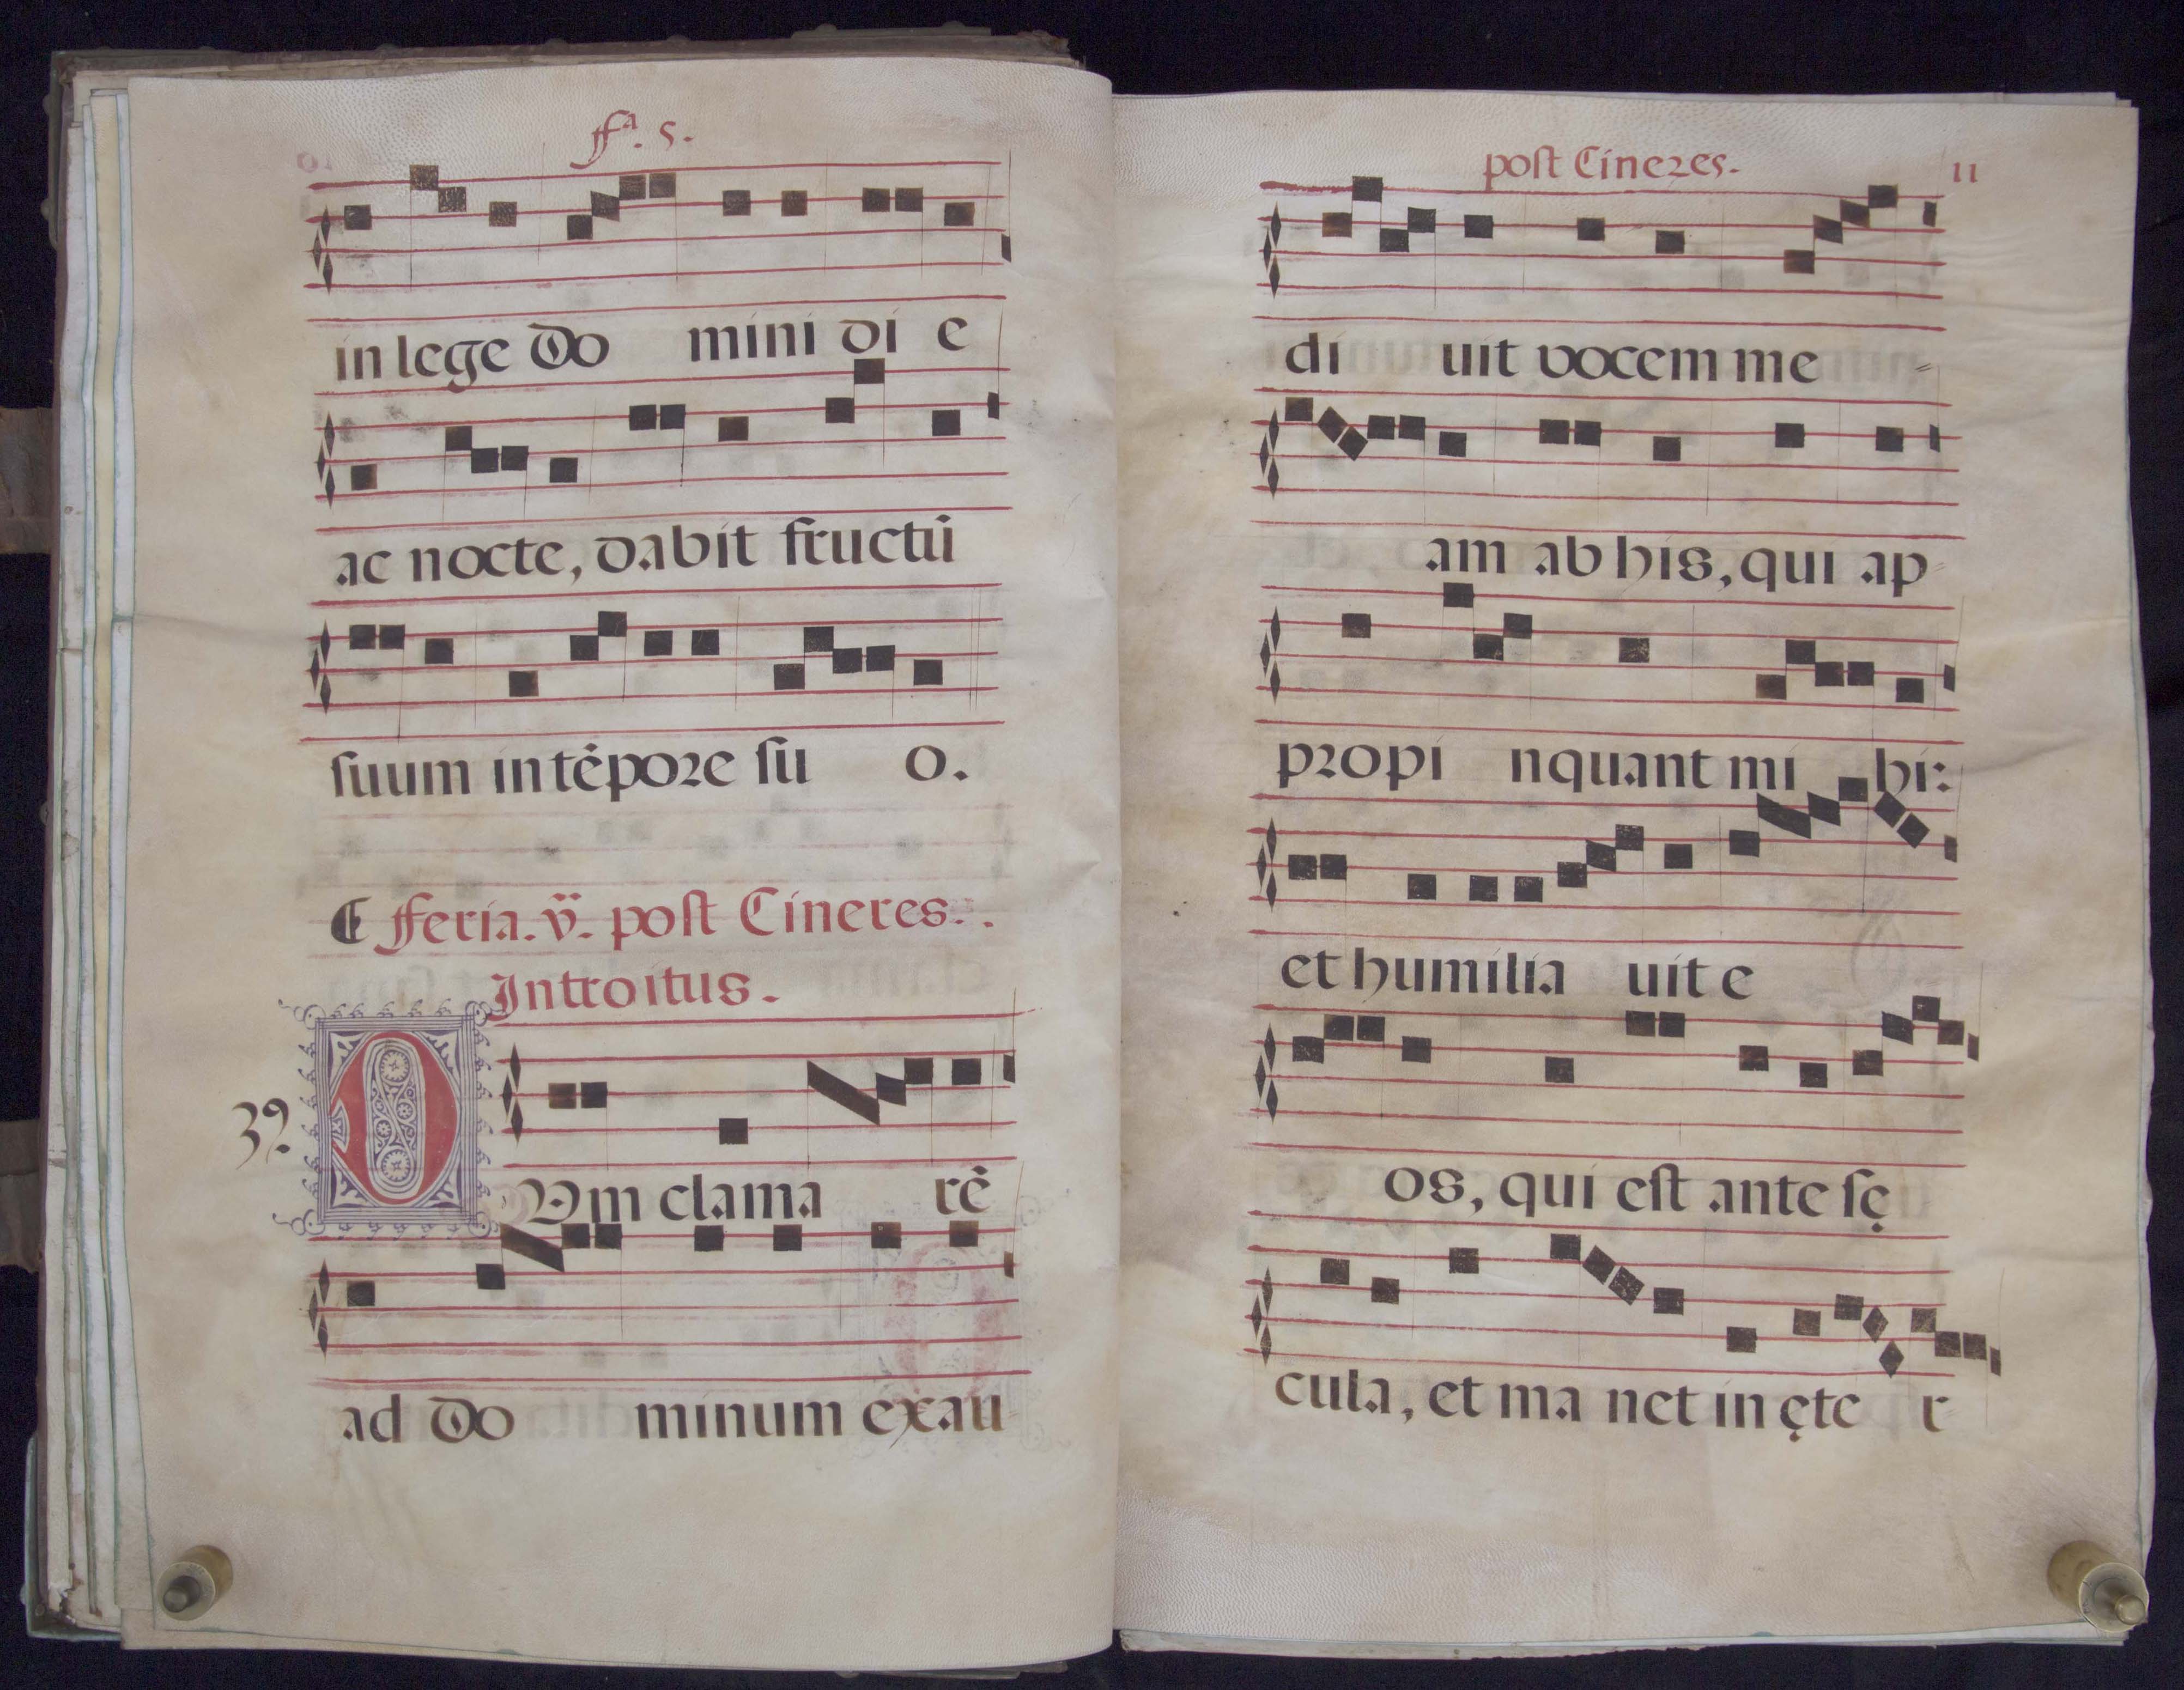 fª. 5.
in lege Do mini di e
ac nocte, dabit fructū
ſuum in tēpore ſu o.
¶ fferia. v. poſt Cineres.
Introitus.
39.
DVm clama rē
ad Do minum exau
poſt Cineres.
11
di uit vocem me -
am ab his, qui ap
propi nquant mi hi:
et humilia uit e
os, qui eſt ante ſę
cula, et ma net in ęte r